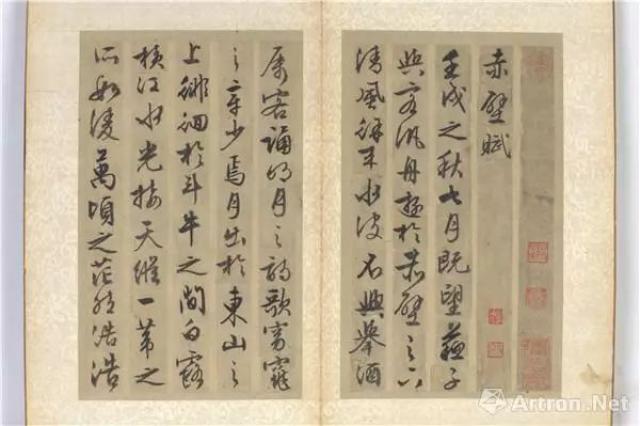 赤壁賦
壬戌之秋七月既望蘇子
與客汎舟遊於赤壁之下
清風徐来水波不興舉酒
属客誦明月之詩歌窈窕
之章少焉月出於東山之
上徘徊於斗牛之間白露
橫江水光接天縱一葦之
所如凌萬頃之茫然浩浩
Artron.Net